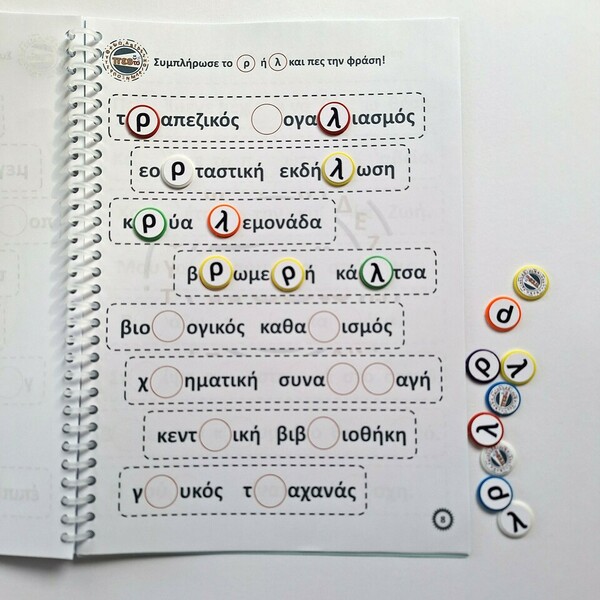 Συμπλήρωσε το ρ ή λ και πες την φράση!
τραπεζικός ογαλιασμός
εορταστική εκδήλωση
κρύα λεμονάδα
βρωμερή κάλτσα
βιο ογικός καθα ισμός
χ ηματική συνα αγή
κεντ ική βιβ ιοθήκη
γ υκός τ αχανάς
8
ρ
ρ λ
λ
ρ
λ